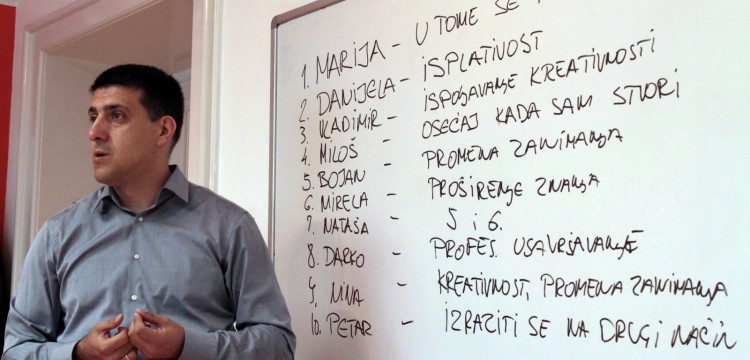 1. MARIJA - U TOME SE
2. DANIJELA - ISPLATIVOST
3. VLADIMIR - ISPOLJAVANJE KREATIVNOSTI
4. MILOŠ - OSEĆAJ KADA SAM STVORI
5. BOJAN - PROMENA ZANIMANJA
6. MIRELA - PROŠIRENJE ZNANJA
7. NATAŠA - 5 i 6.
8. DARKO - PROFES. USAVRŠAVANJE
9. NINA - KREATIVNOST, PROMENA ZANIMANJA
10. PETAR - IZRAZITI SE NA DRUGI NAČIN